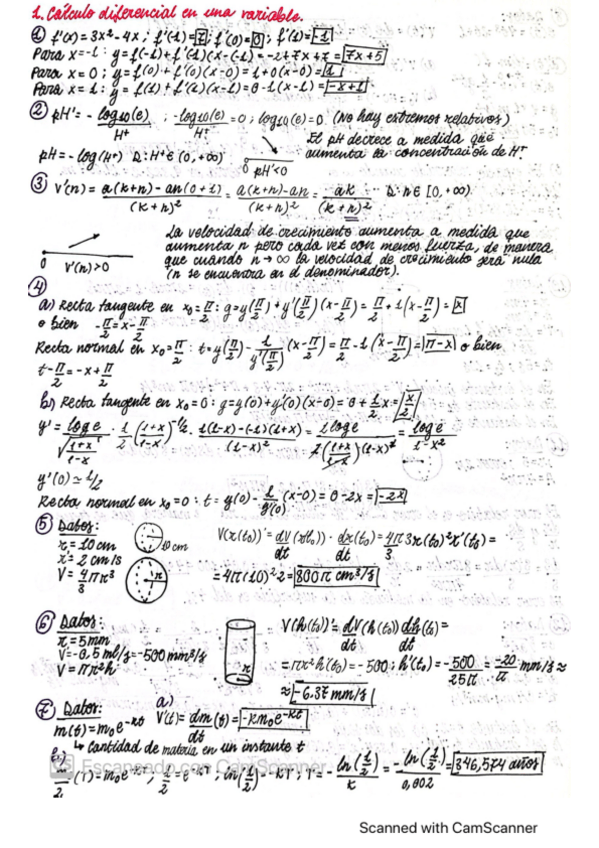 1. Cálculo diferencial en una variable.
① f'(x) = 3x²-4x ; f'(-1) = 7 ; f'(0) = 0 ; f'(1) = -1
Para x=-1 : y = f(-1) + f'(-1)(x-(-1)) = -2+7x+7 = 7x+5
Para x=0 ; y = f(0) + f'(0)(x-0) = 1+0(x-0) = 1
Para x=1 : y = f(1) + f'(1)(x-1) = 0-1(x-1) = -x+1
② pH' = - log10(e)/H⁺ ; -log10(e)/H⁺ = 0 ; log10(e) = 0 (No hay extremos relativos)
pH = -log(H⁺) D: H⁺∈(0,+∞) 0 pH'<0 El pH decrece a medida que
aumenta la concentración de H⁺
③ V'(n) = a(k+n)-an(0+1)/(k+n)² = a(k+n)-an/(k+n)² = ak/(k+n)² D: n∈[0,+∞)
La velocidad de crecimiento aumenta a medida que
aumenta n pero cada vez con menos fuerza, de manera
0 V'(n)>0 que cuando n→∞ la velocidad de crecimiento será nula
(n se encuentra en el denominador).
④
a) Recta tangente en x₀=π/2 : y = y(π/2) + y'(π/2)(x-π/2) = π/2 + 1(x-π/2) = x
o bien -π/2 = x-π/2
Recta normal en x₀=π/2 : t = y(π/2) - 1/y'(π/2) (x-π/2) = π/2 - 1(x-π/2) = π-x o bien
t-π/2 = -x+π/2
b) Recta tangente en x₀=0 : y = y(0) + y'(0)(x-0) = 0 + 1/2 x = x/2
y' = log e/√(1+x/1-x) · 1/2 (1+x/1-x)^-1/2 · 1(1-x)-(-1)(1+x)/(1-x)² = 2 log e/2(1+x/1-x)(1-x)² = log e/1-x²
y'(0) ≃ 1/2
Recta normal en x₀=0 : t = y(0) - 1/y'(0) (x-0) = 0-2x = -2x
⑤ Datos:
r = 10 cm 10 cm V(r(t₀))' = dV(r(t₀))/dt · dr(t₀)/dt = 4π/3 3r(t₀)² r'(t₀) =
r' = 2 cm/s
V = 4/3 πr³ r = 4π(10)² 2 = 800π cm³/s
⑥ Datos: V(h(t₀))' = dV(h(t₀))/dt dh(t₀)/dt =
r = 5mm
V = -0,5 ml/s = -500 mm³/s = πr²h'(t₀) = -500 ; h'(t₀) = -500/25π = -20/π mm/s ≈
V = πr²h r ≈ -6.37 mm/s
⑦ Datos: a)
m(t) = m₀e^-kt V'(t) = dm(t)/dt = -km₀e^-kt
↳ Cantidad de materia en un instante t
CS Escaneado con CamScanner
b) m/2 (T) = m₀e^-kT ; 1/2 = e^-kT ; ln(1/2) = -kT ; T = -ln(1/2)/k = -ln(1/2)/0,002 = 346,574 años
Scanned with CamScanner